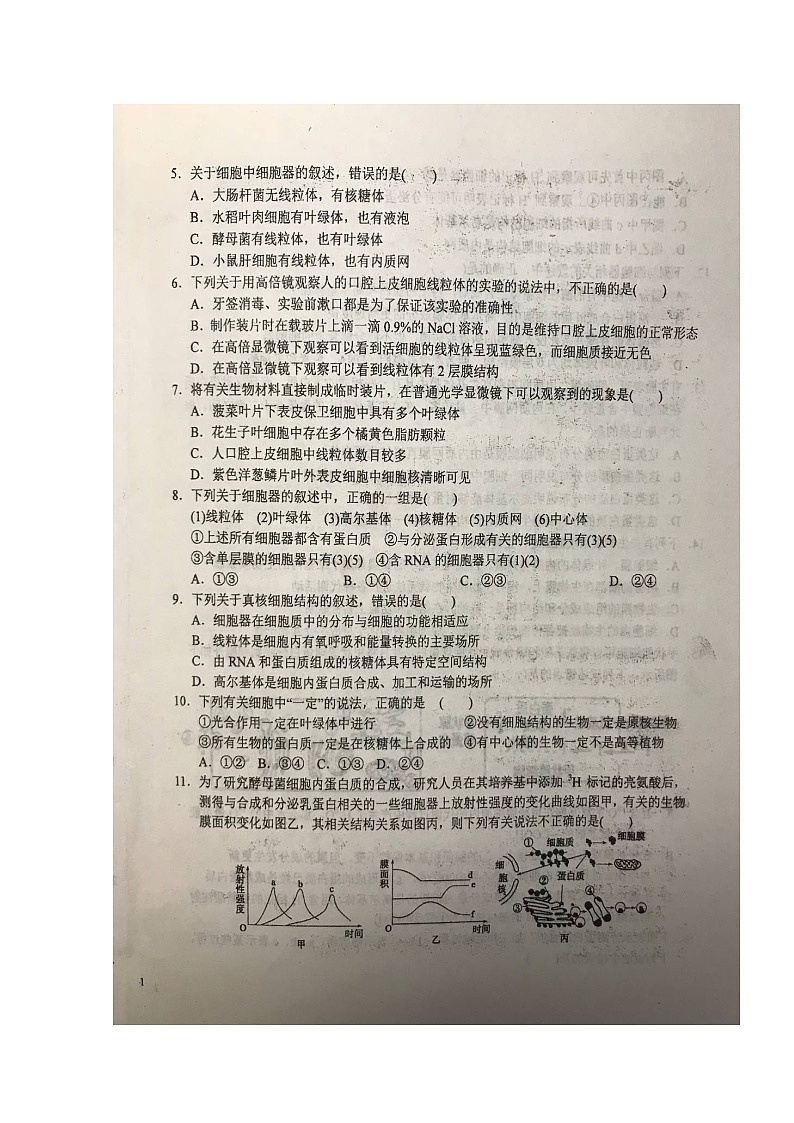 5．关于细胞中细胞器的叙述，错误的是(　　)
A．大肠杆菌无线粒体，有核糖体
B．水稻叶肉细胞有叶绿体，也有液泡
C．酵母菌有线粒体，也有叶绿体
D．小鼠肝细胞有线粒体，也有内质网
6．下列关于用高倍镜观察人的口腔上皮细胞线粒体的实验的说法中，不正确的是(　　)
A．牙签消毒、实验前漱口都是为了保证该实验的准确性
B．制作装片时在载玻片上滴一滴 0.9%的 NaCl 溶液，目的是维持口腔上皮细胞的正常形态
C．在高倍显微镜下观察可以看到活细胞的线粒体呈现蓝绿色，而细胞质接近无色
D．在高倍显微镜下观察可以看到线粒体有 2 层膜结构
7．将有关生物材料直接制成临时装片，在普通光学显微镜下可以观察到的现象是(　　)
A．菠菜叶片下表皮保卫细胞中具有多个叶绿体
B．花生子叶细胞中存在多个橘黄色脂肪颗粒
C．人口腔上皮细胞中线粒体数目较多
D．紫色洋葱鳞片叶外表皮细胞中细胞核清晰可见
8．下列关于细胞器的叙述中，正确的一组是(　　)
(1)线粒体　(2)叶绿体　(3)高尔基体　(4)核糖体　(5)内质网　(6)中心体
①上述所有细胞器都含有蛋白质　②与分泌蛋白形成有关的细胞器只有(3)(5)
③含单层膜的细胞器只有(3)(5)　④含 RNA 的细胞器只有(1)(2)
A．①③　B．①④　C．②③　D．②④
9．下列关于真核细胞结构的叙述，错误的是(　　)
A．细胞器在细胞质中的分布与细胞的功能相适应
B．线粒体是细胞内有氧呼吸和能量转换的主要场所
C．由 RNA 和蛋白质组成的核糖体具有特定空间结构
D．高尔基体是细胞内蛋白质合成、加工和运输的场所
10．下列有关细胞中“一定”的说法，正确的是　(　　)
①光合作用一定在叶绿体中进行　②没有细胞结构的生物一定是原核生物
③所有生物的蛋白质一定是在核糖体上合成的　④有中心体的生物一定不是高等植物
A．①②　B．③④　C．①③　D．②④
11．为了研究酵母菌细胞内蛋白质的合成，研究人员在其培养基中添加 ³H 标记的亮氨酸后，
测得与合成和分泌乳蛋白相关的一些细胞器上放射性强度的变化曲线如图甲，有关的生物
膜面积变化如图乙，其相关结构关系如图丙，则下列有关说法不正确的是(　　)
放射性强度 a b c O 时间 甲
膜面积 d e f O 时间 乙
① 细胞质 细胞膜 细胞核 ② 蛋白质 ③ ④ 丙
1